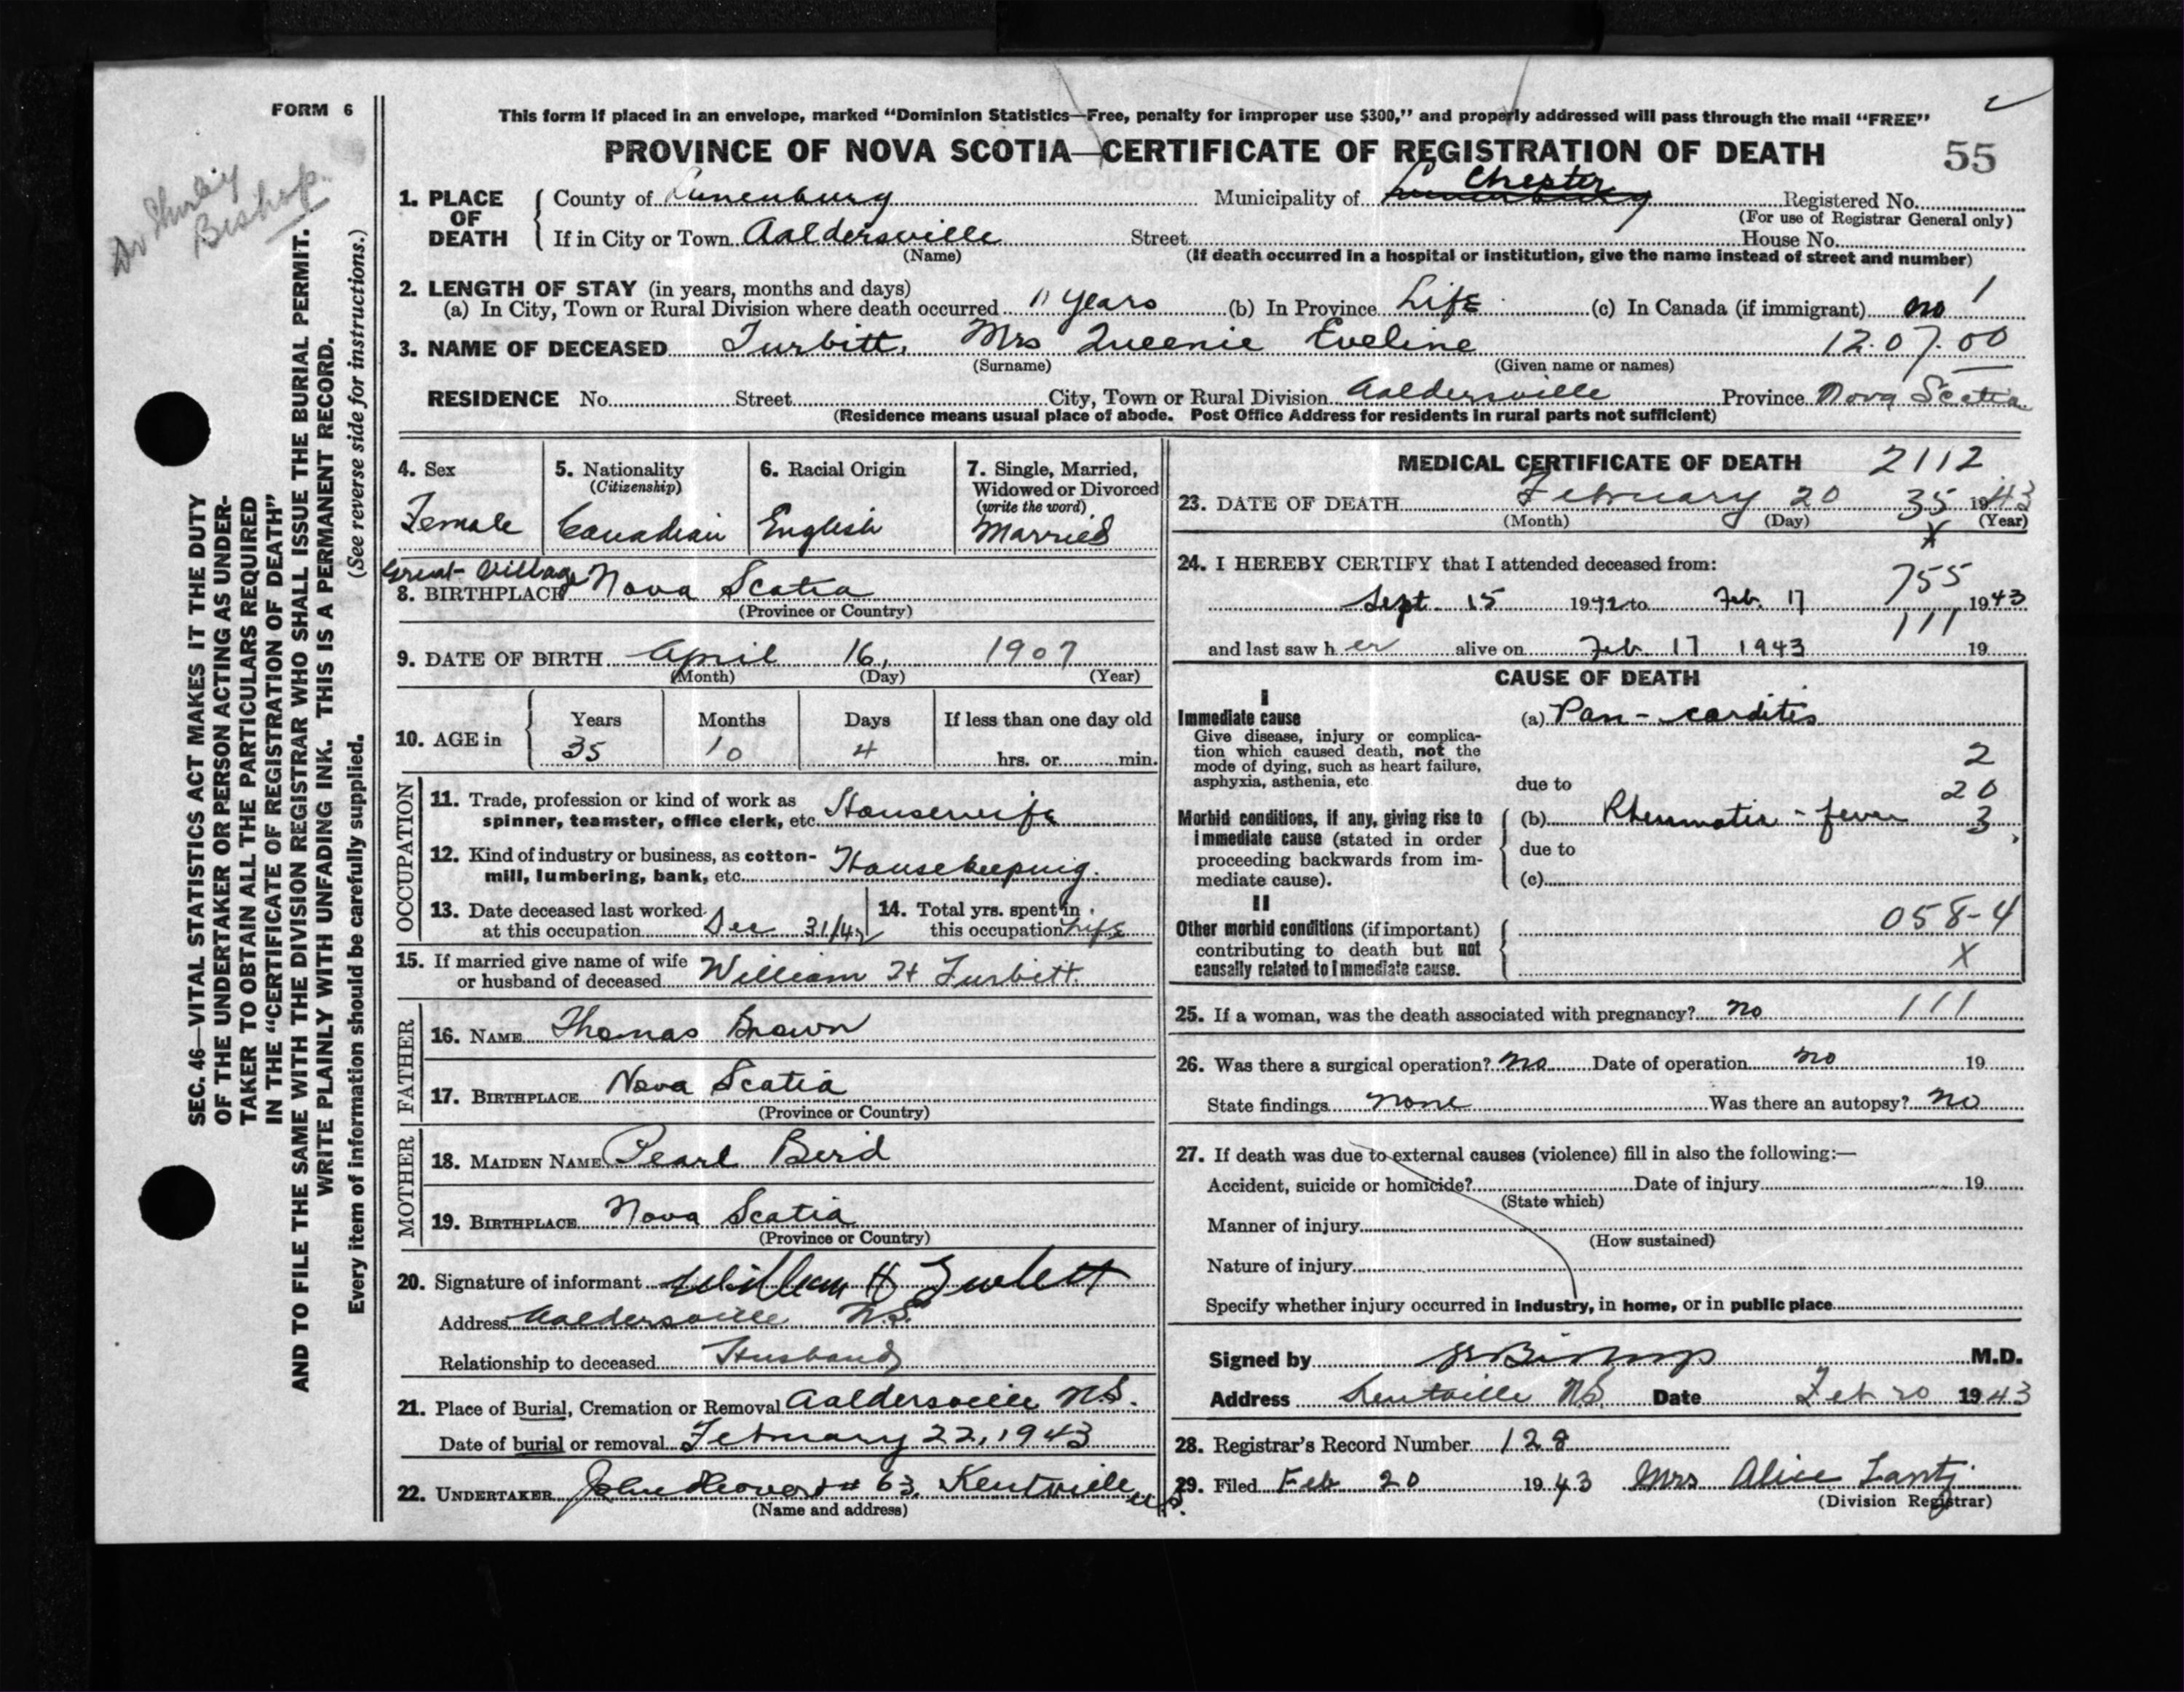 FORM 6
Dr Shirley
Bishop.
This form if placed in an envelope, marked “Dominion Statistics—Free, penalty for improper use $300,” and properly addressed will pass through the mail “FREE”
PROVINCE OF NOVA SCOTIA—CERTIFICATE OF REGISTRATION OF DEATH 55
1. PLACE OF DEATH
County of Lunenburg Municipality of Lunenburg Chester Registered No.
(For use of Registrar General only)
If in City or Town Aaldersville Street House No.
(Name) (If death occurred in a hospital or institution, give the name instead of street and number)
2. LENGTH OF STAY (in years, months and days)
(a) In City, Town or Rural Division where death occurred 11 years (b) In Province Life (c) In Canada (if immigrant) no 1
3. NAME OF DECEASED Turbitt, Mrs Queenie Eveline 12.07.00
(Surname) (Given name or names)
RESIDENCE No. Street City, Town or Rural Division Aaldersville Province Nova Scotia
(Residence means usual place of abode. Post Office Address for residents in rural parts not sufficient)
4. Sex
Female
5. Nationality
(Citizenship)
Canadian
6. Racial Origin
English
7. Single, Married,
Widowed or Divorced
(write the word)
Married
Great Village
8. BIRTHPLACE Nova Scotia
(Province or Country)
9. DATE OF BIRTH April 16, 1907
(Month) (Day) (Year)
10. AGE in
Years Months Days If less than one day old
35 10 4 hrs. or min.
OCCUPATION
11. Trade, profession or kind of work as
spinner, teamster, office clerk, etc. Housewife
12. Kind of industry or business, as cotton-
mill, lumbering, bank, etc. Housekeeping.
13. Date deceased last worked
at this occupation Dec 31/42
14. Total yrs. spent in
this occupation Life
15. If married give name of wife
or husband of deceased William H Turbitt.
FATHER
16. NAME Thomas Brown
17. BIRTHPLACE Nova Scotia
(Province or Country)
MOTHER
18. MAIDEN NAME Pearl Berd
19. BIRTHPLACE Nova Scotia
(Province or Country)
20. Signature of informant William H Turbitt
Address Aaldersville N.S.
Relationship to deceased Husband
21. Place of Burial, Cremation or Removal Aaldersville N.S.
Date of burial or removal February 22, 1943
22. UNDERTAKER John # 63, Kentville N.S.
(Name and address)
MEDICAL CERTIFICATE OF DEATH 2112
23. DATE OF DEATH February 20 35 1943
(Month) (Day) (Year)
X
24. I HEREBY CERTIFY that I attended deceased from:
755
Sept. 15 1942 to Feb. 17 1943
111
and last saw her alive on Feb 17 1943 19
CAUSE OF DEATH
I
Immediate cause (a) Pan-carditis
Give disease, injury or complica-
tion which caused death, not the
mode of dying, such as heart failure,
asphyxia, asthenia, etc.
2
due to
20
Morbid conditions, if any, giving rise to (b) Rheumatic-fever 3
immediate cause (stated in order
proceeding backwards from im-
mediate cause).
due to
(c)
II
Other morbid conditions (if important) 058-4
contributing to death but not
causally related to immediate cause. X
25. If a woman, was the death associated with pregnancy? No 111
26. Was there a surgical operation? No Date of operation No 19
State findings None Was there an autopsy? No
27. If death was due to external causes (violence) fill in also the following:—
Accident, suicide or homicide? Date of injury 19
(State which)
Manner of injury
(How sustained)
Nature of injury
Specify whether injury occurred in industry, in home, or in public place
Signed by Bishop M.D.
Address Kentville N.S. Date Feb 20 1943
28. Registrar's Record Number 128
29. Filed Feb 20 1943 Mrs Alice Lantz
(Division Registrar)
SEC. 46—VITAL STATISTICS ACT MAKES IT THE DUTY
OF THE UNDERTAKER OR PERSON ACTING AS UNDER-
TAKER TO OBTAIN ALL THE PARTICULARS REQUIRED
IN THE “CERTIFICATE OF REGISTRATION OF DEATH”
AND TO FILE THE SAME WITH THE DIVISION REGISTRAR WHO SHALL ISSUE THE BURIAL PERMIT.
WRITE PLAINLY WITH UNFADING INK. THIS IS A PERMANENT RECORD.
Every item of information should be carefully supplied. (See reverse side for instructions.)